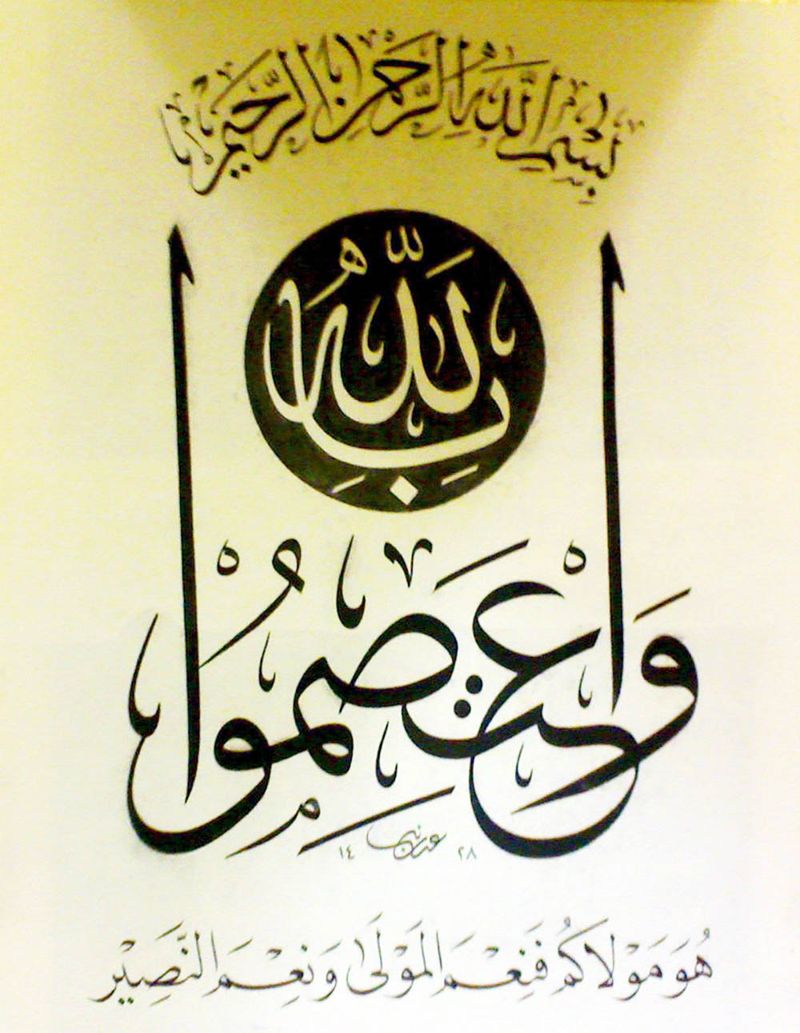 بِسْمِ اللَّهِ الرَّحْمٰنِ الرَّحِيمِ
وَاعْتَصِمُوا
بِاللَّهِ
١٤ ٢٨
هُوَ مَوْلَاكُمْ فَنِعْمَ الْمَوْلَىٰ وَنِعْمَ النَّصِيْر